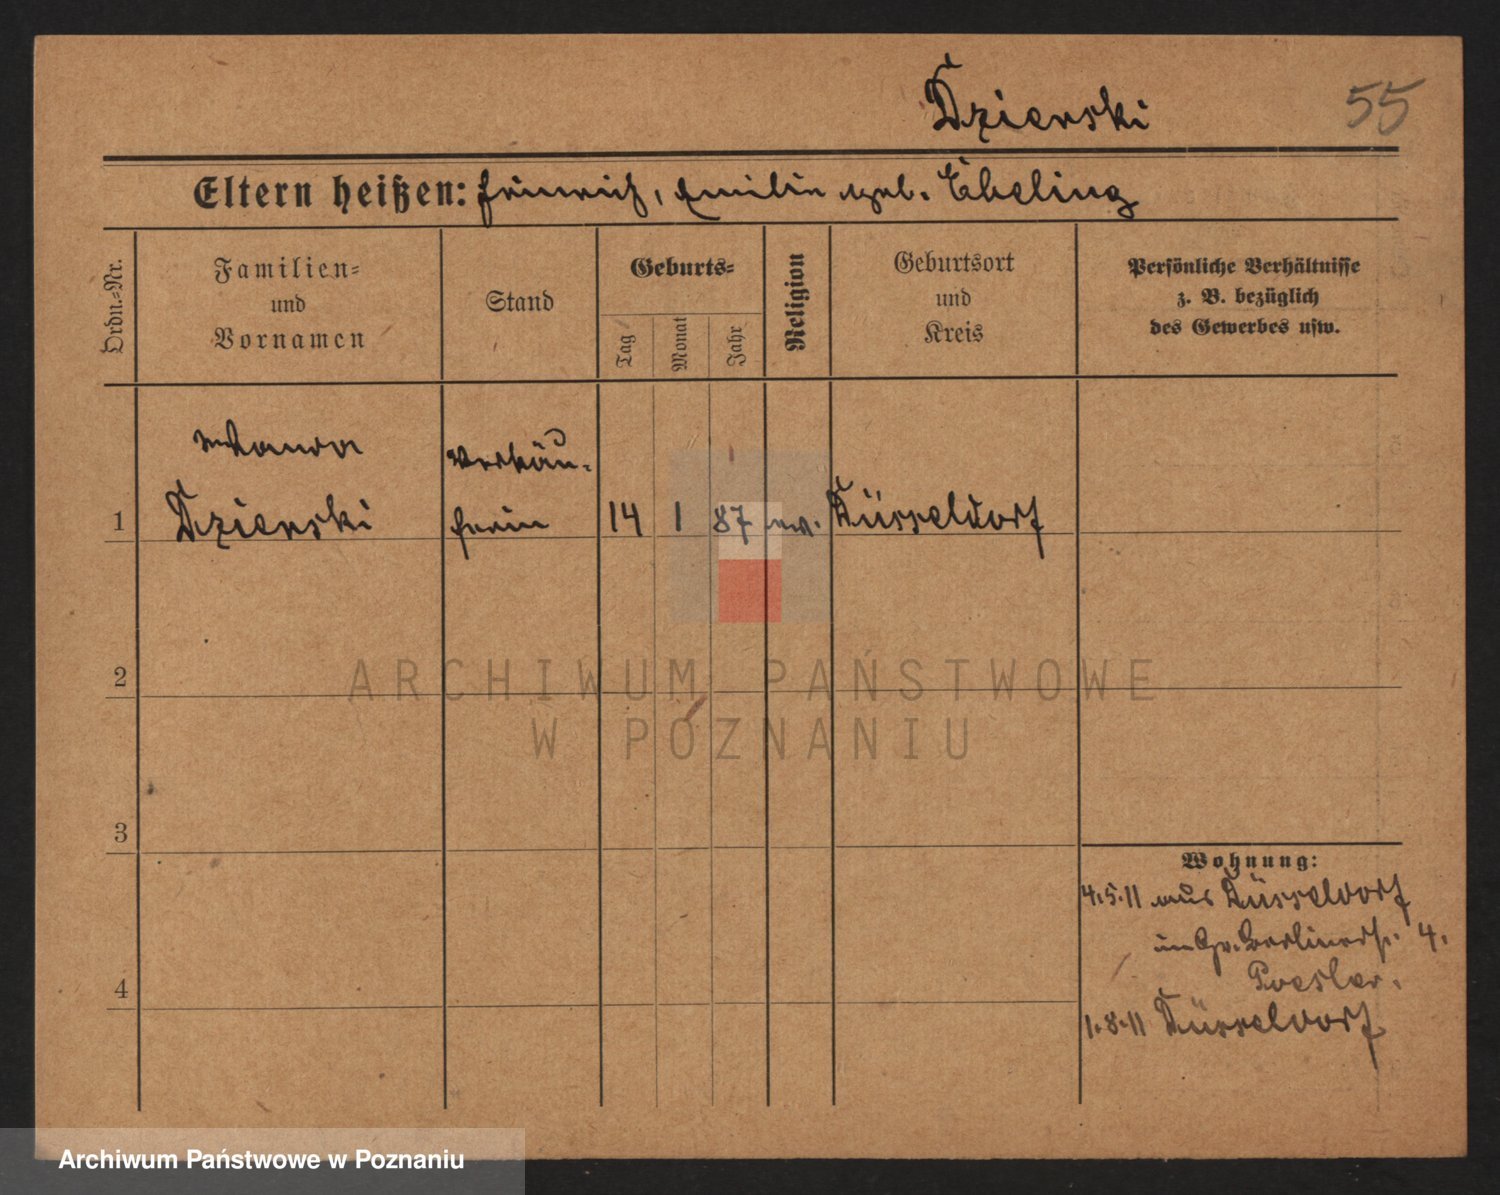 Dzierski
55
Eltern heißen: Heinrich, Emilie geb. Ebeling
Ordn.=Nr.
Familien=
und
Vornamen
Stand
Geburts=
Tag
Monat
Jahr
Religion
Geburtsort
und
Kreis
Persönliche Verhältnisse
z. B. bezüglich
des Gewerbes usw.
Verkäu-
1
Dzierski
ferin
14
1
87
ev.
Düsseldorf
2
ARCHIWUM PAŃSTWOWE
W POZNANIU
3
Wohnung:
4.5.11 aus Düsseldorf
Berlinerstr. 4.
4
1.8.11 Düsseldorf
Archiwum Państwowe w Poznaniu